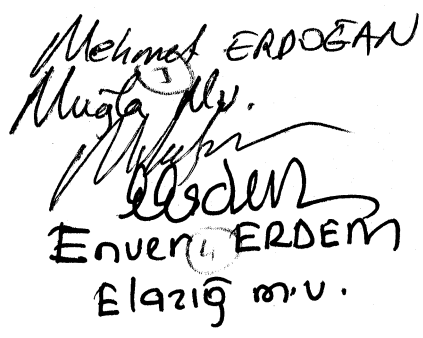 Mehmet ERDOĞAN
3
Muğla Mv.
Enver ERDEM
4
Elazığ m.v.